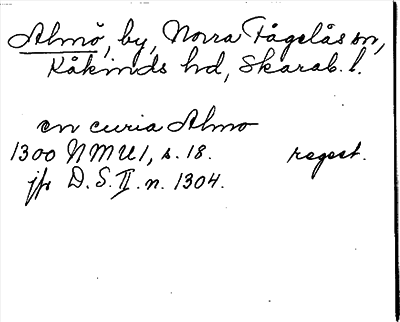 Almö, by, Norra Fågelås sn,
Kåkinds hd, Skarab. l.
en curia Almo
1300 NMU 1, s. 18. regest.
jfr D. S. II. n. 1304.